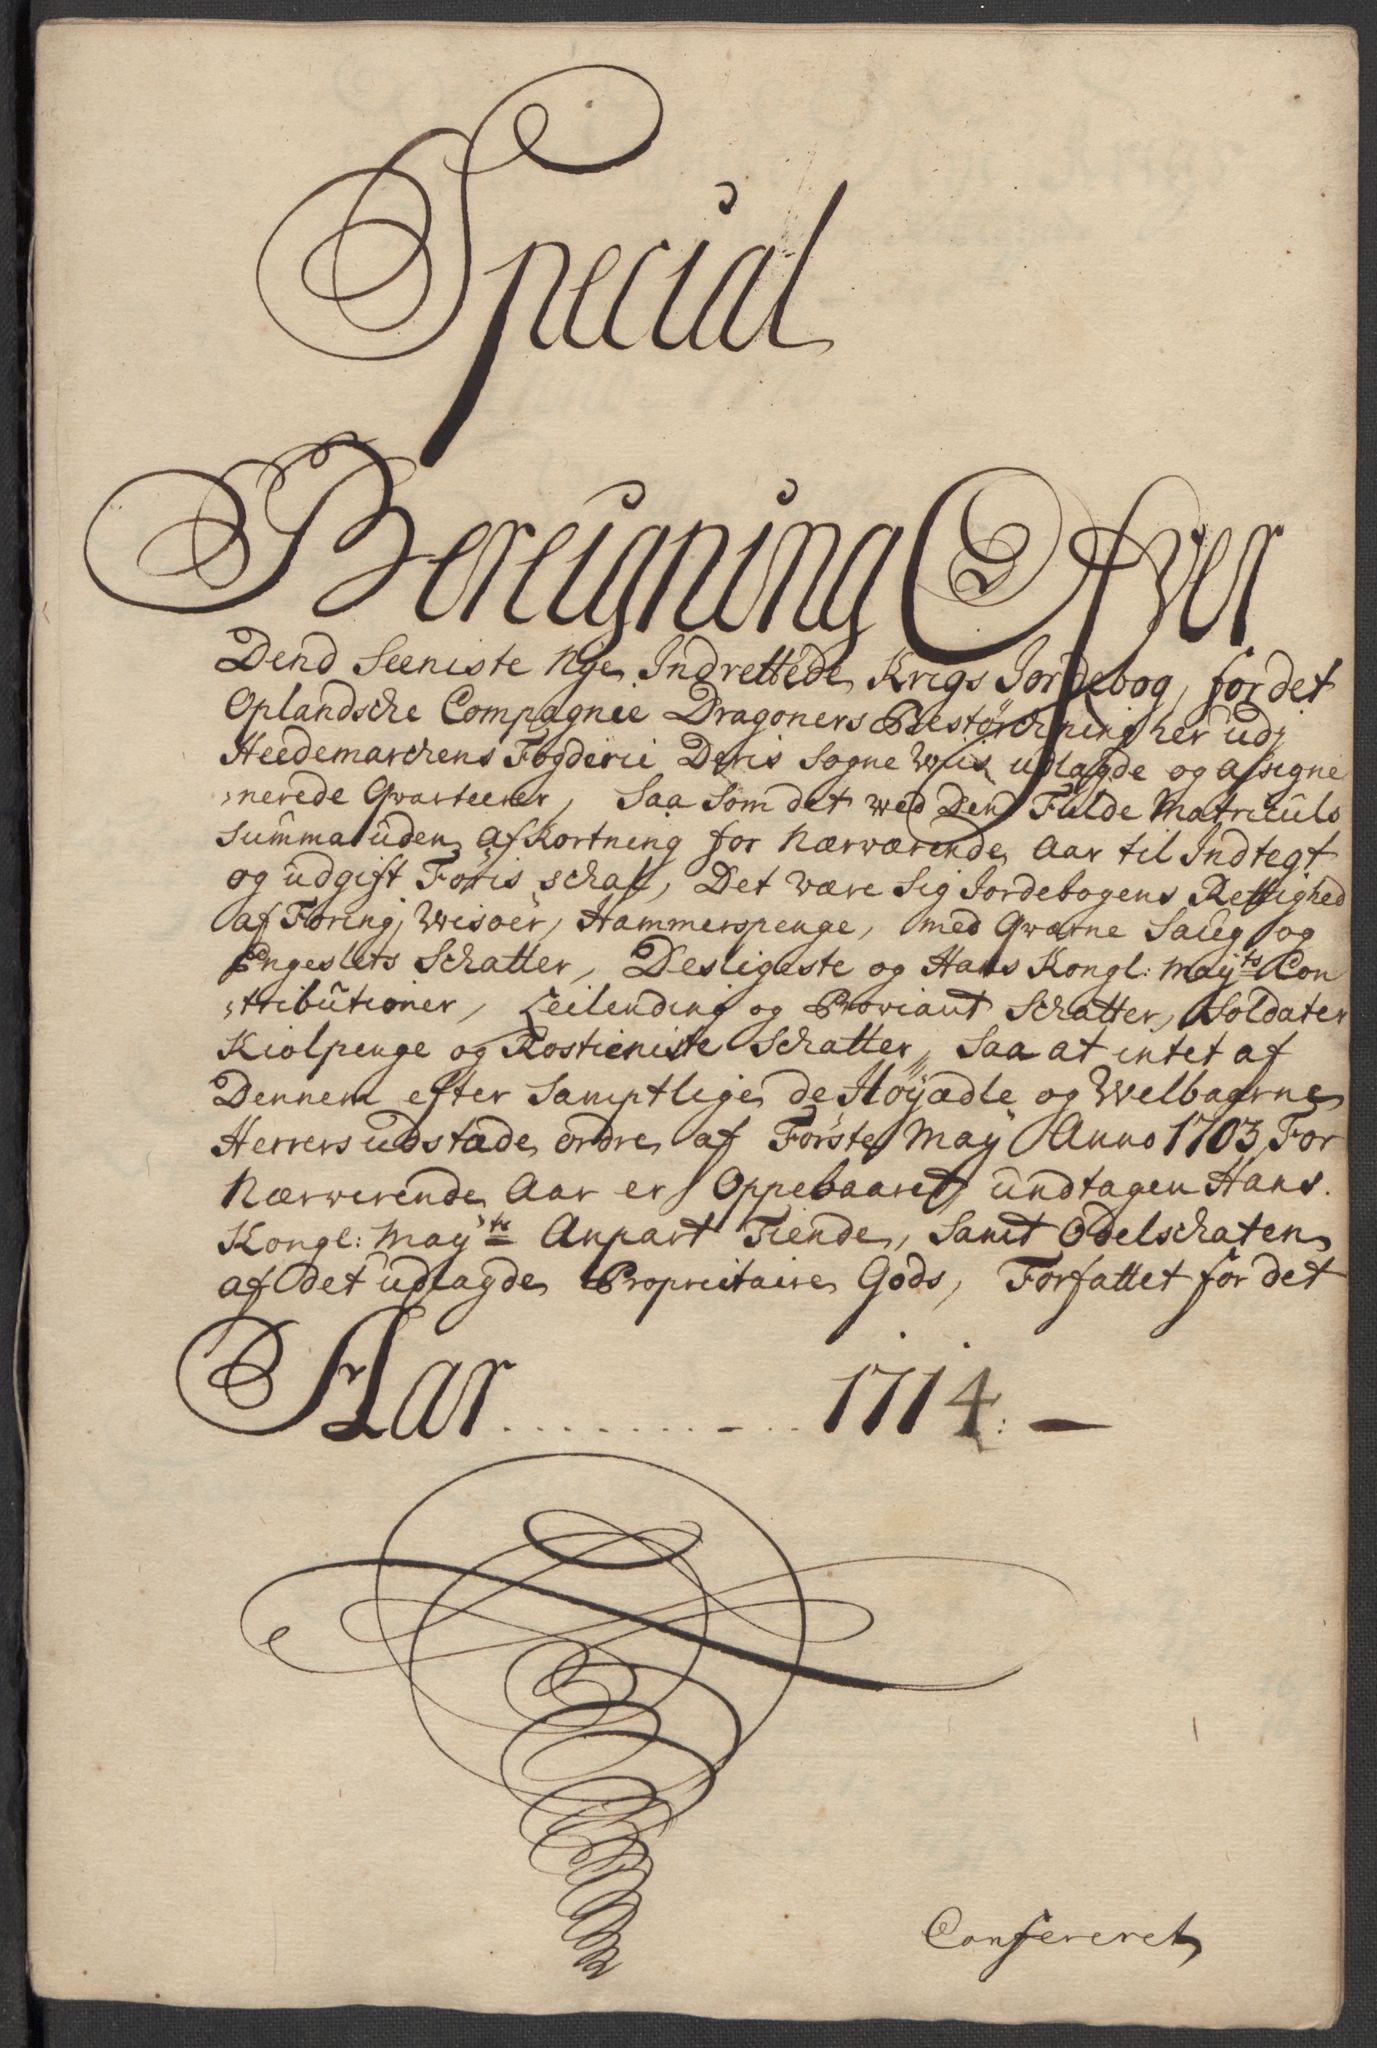 Special
Bereigning Ofver
Dend Seeniste Nye Indrettede Krigs Jordebog, for det
Oplandsche Compagnie Dragoners Bestørchning her udj
Heedemarchens Fogderie Deris Sogne Wiis udlagde og assigne
nerede Qvarteerer, Saa Som det wed Den Fulde Matriculs
Summa uden afkortning for Nærværende Aar til Indtegt
og udgift Føris schal, Det være Sig Jordebogens Rettighed
af Foring, Wisøer, Hammerspenge, med Qværne Saug og
Engeslets Schatter, Desligeste og Hans Kongl: Mayts Con
tributioner, Leilending og Proviant Schatter, Soldater
Kiolpenge og Rostieniste Schatter, Saa at intet af
Dennem efter Samptlige de Høyædle og Welbaarne
Herrers udstæde ordre af Første May Anno 1703 For
Nærverende Aar er Oppebaaret, undtagen Hans
Kongl: Mayts Anpart Tiende, Samt Odelschaten
af det udlagde Proprietaire Gods, Forfattet for det
Aar ........ 1714:
Confereret